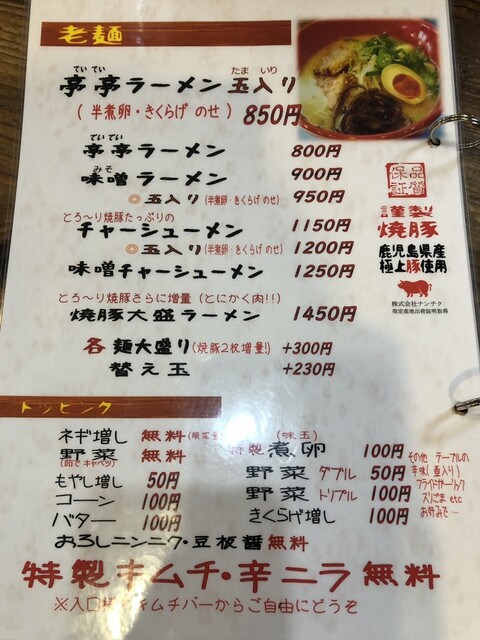 老麺
てい てい たま いり
亭亭ラーメン 玉入り
(半煮卵・きくらげ のせ) 850円
てい てい
亭亭ラーメン 800円
みそ
味噌ラーメン 900円
◎玉入り(半煮卵・きくらげ のせ) 950円
とろ〜り焼豚たっぷりの
チャーシューメン 1150円
◎玉入り(半煮卵・きくらげ のせ) 1200円
味噌チャーシューメン 1250円
とろ〜り焼豚さらに増量(とにかく肉!!)
焼豚大盛ラーメン 1450円
各 麺大盛り(焼豚2枚増量!) +300円
替え玉 +230円
品質
保証
謹製
焼豚
鹿児島県産
極上豚使用
株式会社ナンチク
指定産地出荷証明取得
トッピング
ネギ増し 無料(限定量)
野菜 無料
(茹でキャベツ)
もやし増し 50円
コーン 100円
バター 100円
おろしニンニク・豆板醤 無料
(味玉)
特製煮卵 100円
野菜 ダブル 50円
野菜 トリプル 100円
きくらげ増し 100円
その他 テーブルの
辛味(壺入り)
フライドガーリック
スリごま etc
お好みで…
特製キムチ・辛ニラ 無料
※入口横 キムチバーからご自由にどうぞ